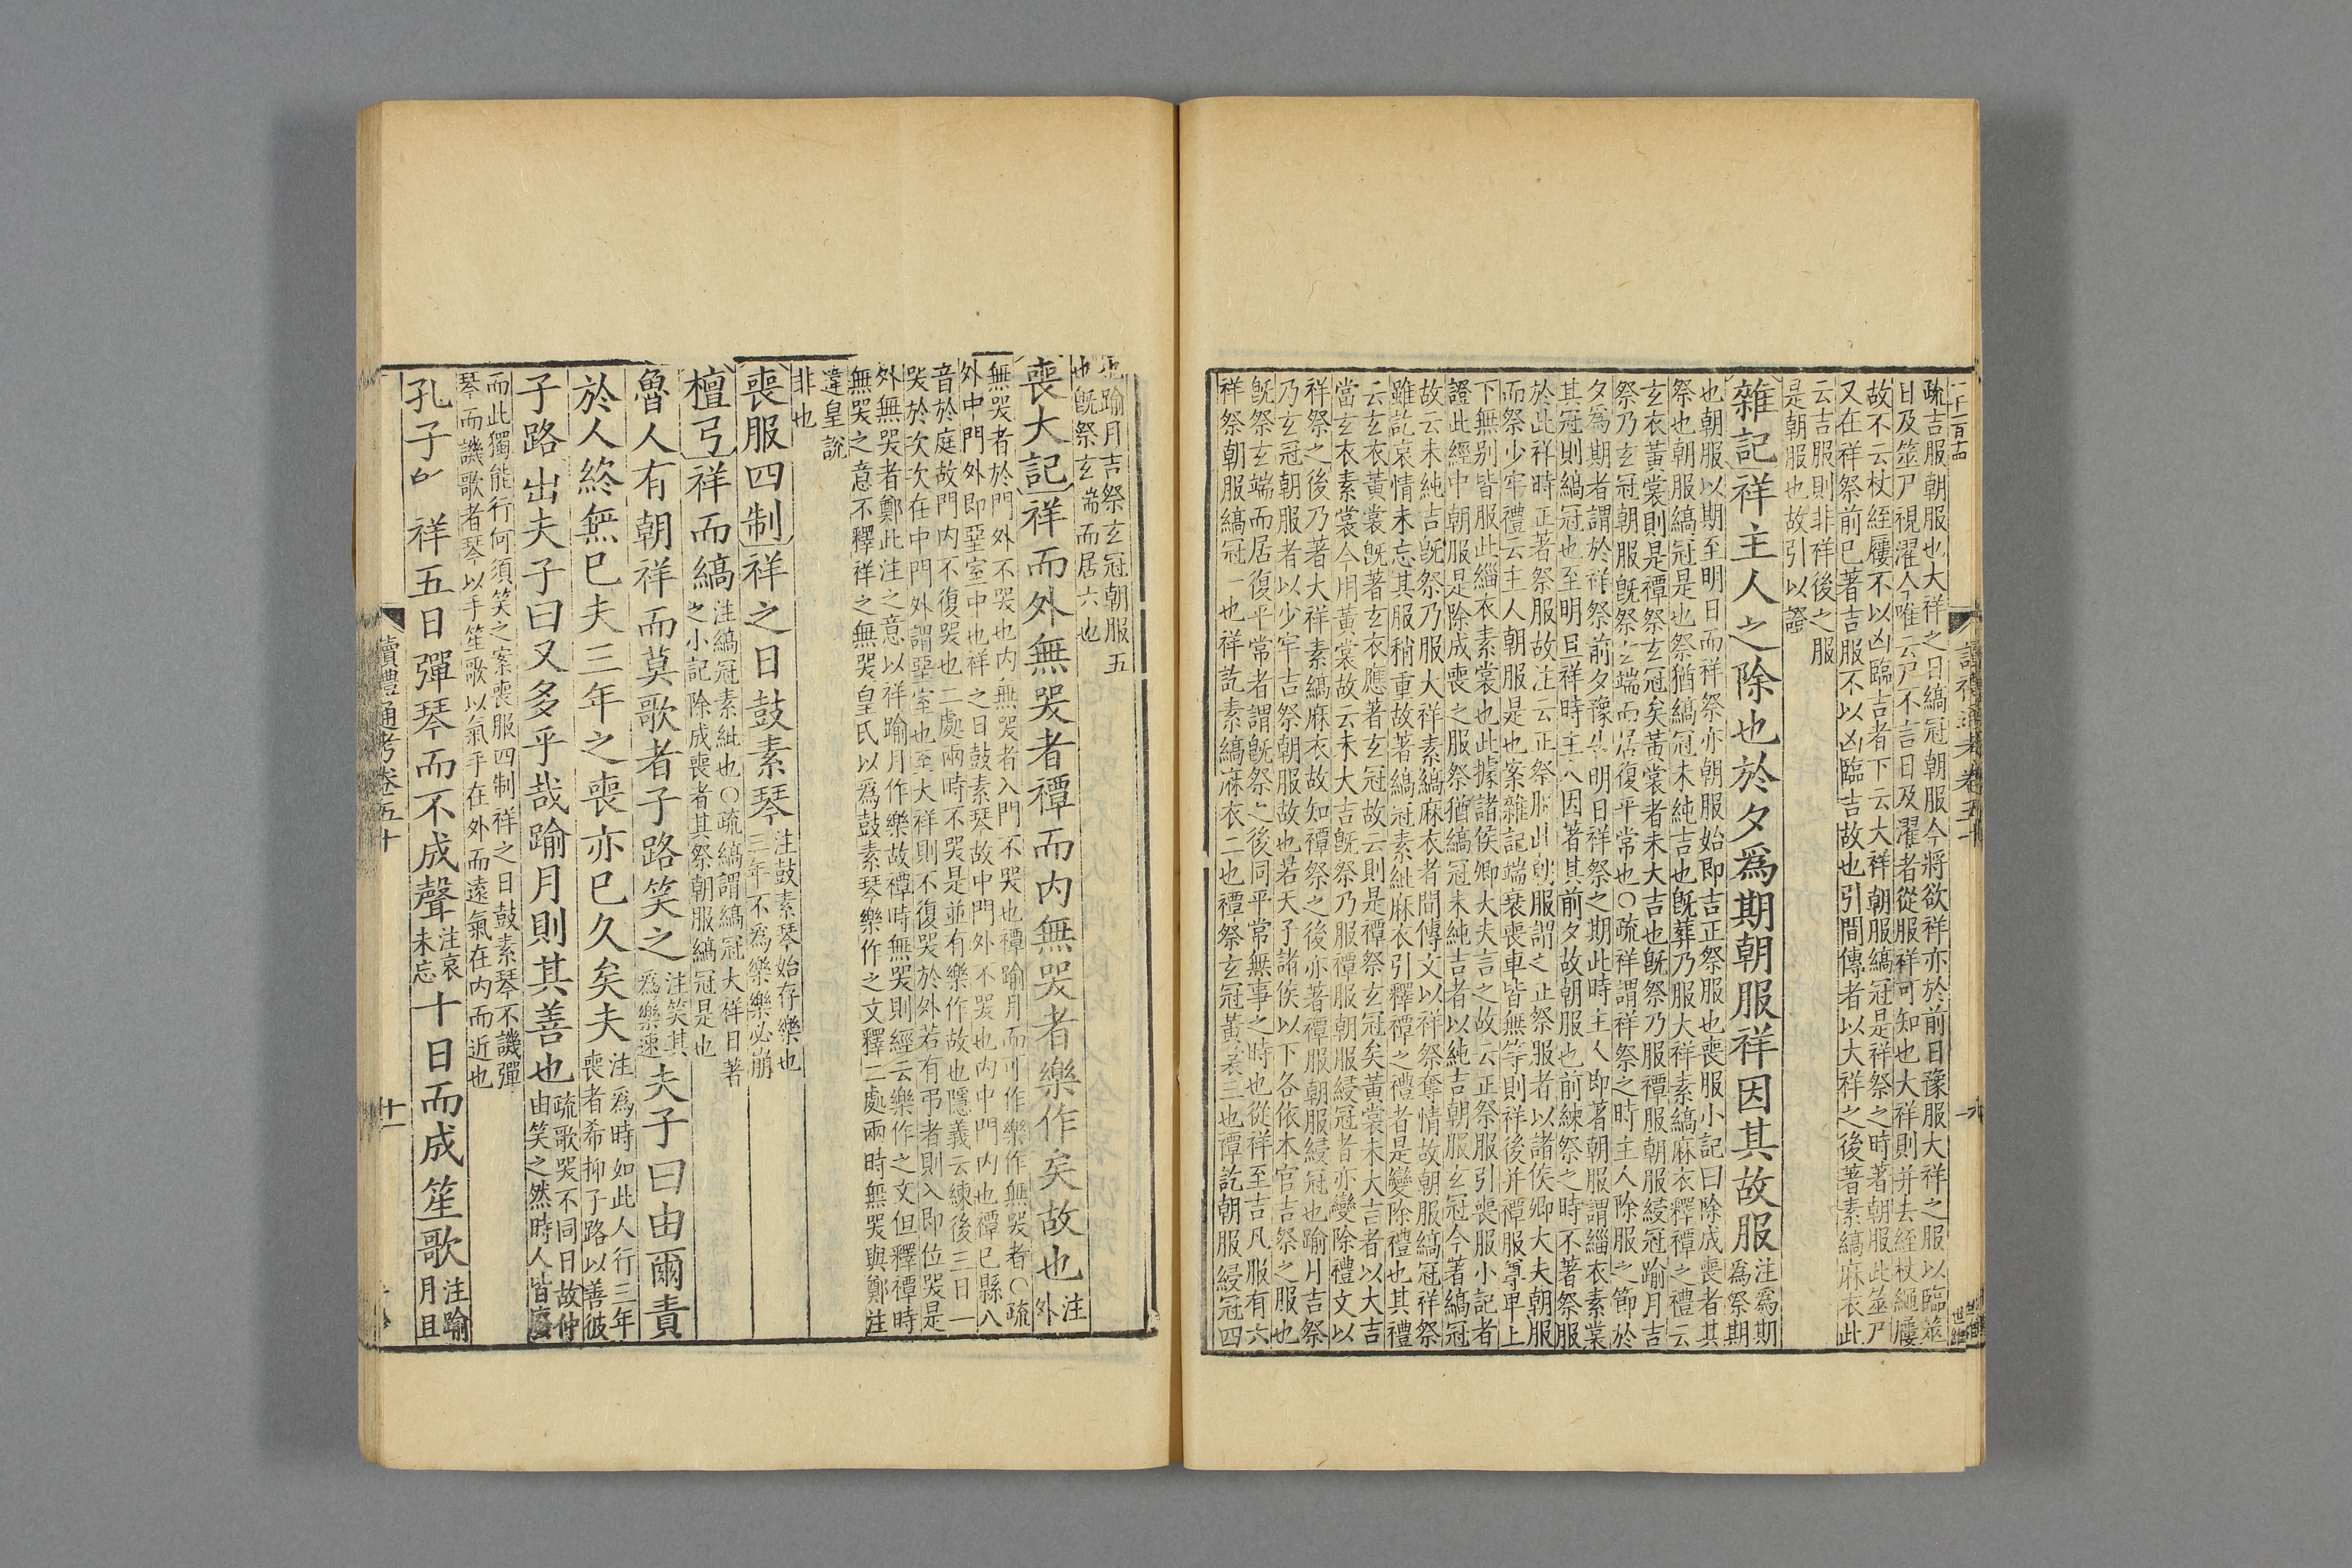 疏吉服朝服也大祥之日縞冠朝服今將欲祥亦於前日豫服大祥之服以臨筮
日及筮尸視濯今唯云尸不言日及濯者從服祥可知也大祥則并去絰杖繩屨
故不云杖絰屨不以凶臨吉者下云大祥朝服縞冠是祥祭之時著朝服此筮尸
又在祥祭前已著吉服不以凶臨吉故也引間傳者以大祥之後著素縞麻衣此
云吉服則非祥後之服
是朝服也故引以證
雜記祥主人之除也於夕爲期朝服祥因其故服
注爲期
爲祭期
也朝服以期至明日而祥祭亦朝服始即吉正祭服也喪服小記曰除成喪者其
祭也朝服縞冠是也祭猶縞冠未純吉也旣葬乃服大祥素縞麻衣釋禫之禮云
玄衣黃裳則是禫祭玄冠矣黃裳者未大吉也旣祭乃服禫服朝服綅冠踰月吉
祭乃玄冠朝服旣祭玄端而居復平常也○疏祥謂祥祭之時主人除服之節於
夕爲期者謂於祥祭前夕豫告明日祥祭之期此時主人即著朝服謂緇衣素裳
其冠則縞冠也至明旦祥時主人因著其前夕故朝服也前練祭之時不著祭服
於此祥時正著祭服故注云正祭服此朝服謂之正祭服者以諸侯卿大夫朝服
而祭少牢禮云主人朝服是也案雜記端衰喪車皆無等則祥後并禫服尊卑上
下無别皆服此緇衣素裳也此據諸侯卿大夫言之故云正祭服引喪服小記者
證此經中朝服是除成喪之服祭猶縞冠未純吉者以純吉朝服玄冠今著縞冠
故云未純吉旣祭乃服大祥素縞麻衣者問傳文以祥祭奪情故朝服縞冠祥祭
雖訖哀情未忘其服稍重故著縞冠素紕麻衣引釋禫之禮者是變除禮也其禮
云玄衣黃裳旣著玄衣應著玄冠故云則是禫祭玄冠矣黃裳未大吉者以大吉
當玄衣素裳今用黃裳故云未大吉旣祭乃服禫服朝服綅冠者亦變除禮文以
祥祭之後乃著大祥素縞麻衣故知禫祭之後亦著禫服朝服綅冠也踰月吉祭
乃玄冠朝服者以少牢吉祭朝服故也若天子諸侯以下各依本官吉祭之服也
旣祭玄端而居復平常者謂旣祭之後同平常無事之時也從祥至吉凡服有六
祥祭朝服縞冠一也祥訖素縞麻衣二也禫祭玄冠黃裳三也禫訖朝服綅冠四
也踰月吉祭玄冠朝服五
也旣祭玄端而居六也
喪大記祥而外無哭者禫而内無哭者樂作矣故也
注
外
無哭者於門外不哭也内無哭者入門不哭也禫踰月而可作樂作無哭者○疏
外中門外即堊室中也祥之日鼓素琴故中門外不哭也内中門内也禫已縣八
音於庭故門内不復哭也二處兩時不哭是並有樂作故也隱義云練後三日一
哭於次次在中門外謂堊室也至大祥則不復哭於外若有弔者則入即位哭是
外無哭者鄭此注之意以祥踰月作樂故禫時無哭則經云樂作之文但釋禫時
無哭之意不釋祥之無哭皇氏以爲鼓素琴樂作之文釋二處兩時無哭與鄭注
違皇說
非也
喪服四制祥之日鼓素琴
注鼓素琴始存樂也
三年不爲樂樂必崩
檀弓祥而縞
注縞冠素紕也○疏縞謂縞冠大祥日著
之小記除成喪者其祭朝服縞冠是也
魯人有朝祥而莫歌者子路笑之
注笑其
爲樂速
夫子曰由爾責
於人終無已夫三年之喪亦已久矣夫
注爲時如此人行三年
喪者希抑子路以善彼
子路出夫子曰又多乎哉踰月則其善也
疏歌哭不同日故仲
由笑之然時人皆廢
而此獨能行何須笑之案喪服四制祥之日鼓素琴不譏彈
琴而譏歌者琴以手笙歌以氣手在外而遠氣在内而近也
孔子旣祥五日彈琴而不成聲
注哀
未忘
十日而成笙歌
注踰
月且
讀禮通考卷五十
十一